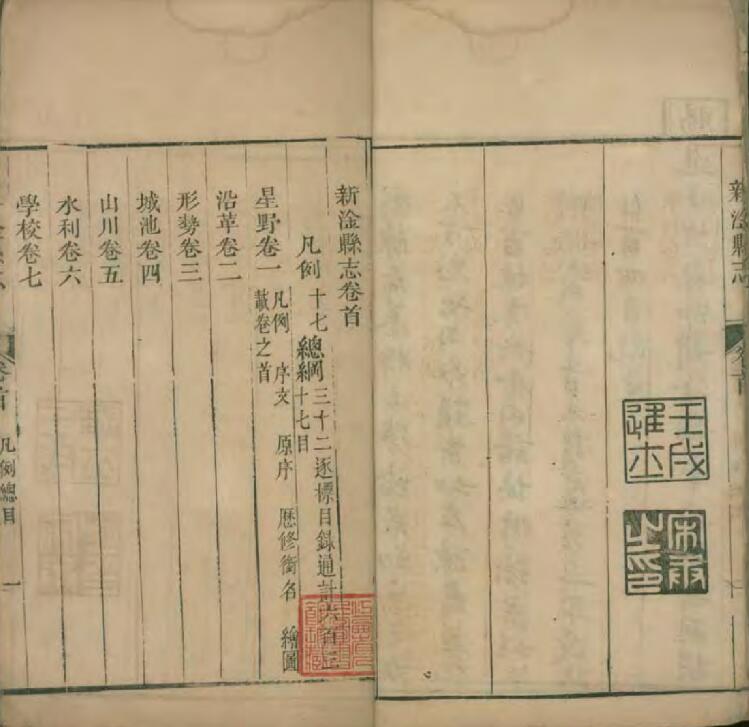 新淦縣志
卷首
壬戌進士
新淦縣志卷首
凡例十七 總綱三十二逐標目録通計六百三十七目
星野卷一 凡例 序文 原序 歷修銜名 繪圖 載卷之首
沿革卷二
形勢卷三
城池卷四
山川卷五
水利卷六
學校卷七
卷首 凡例總目 一